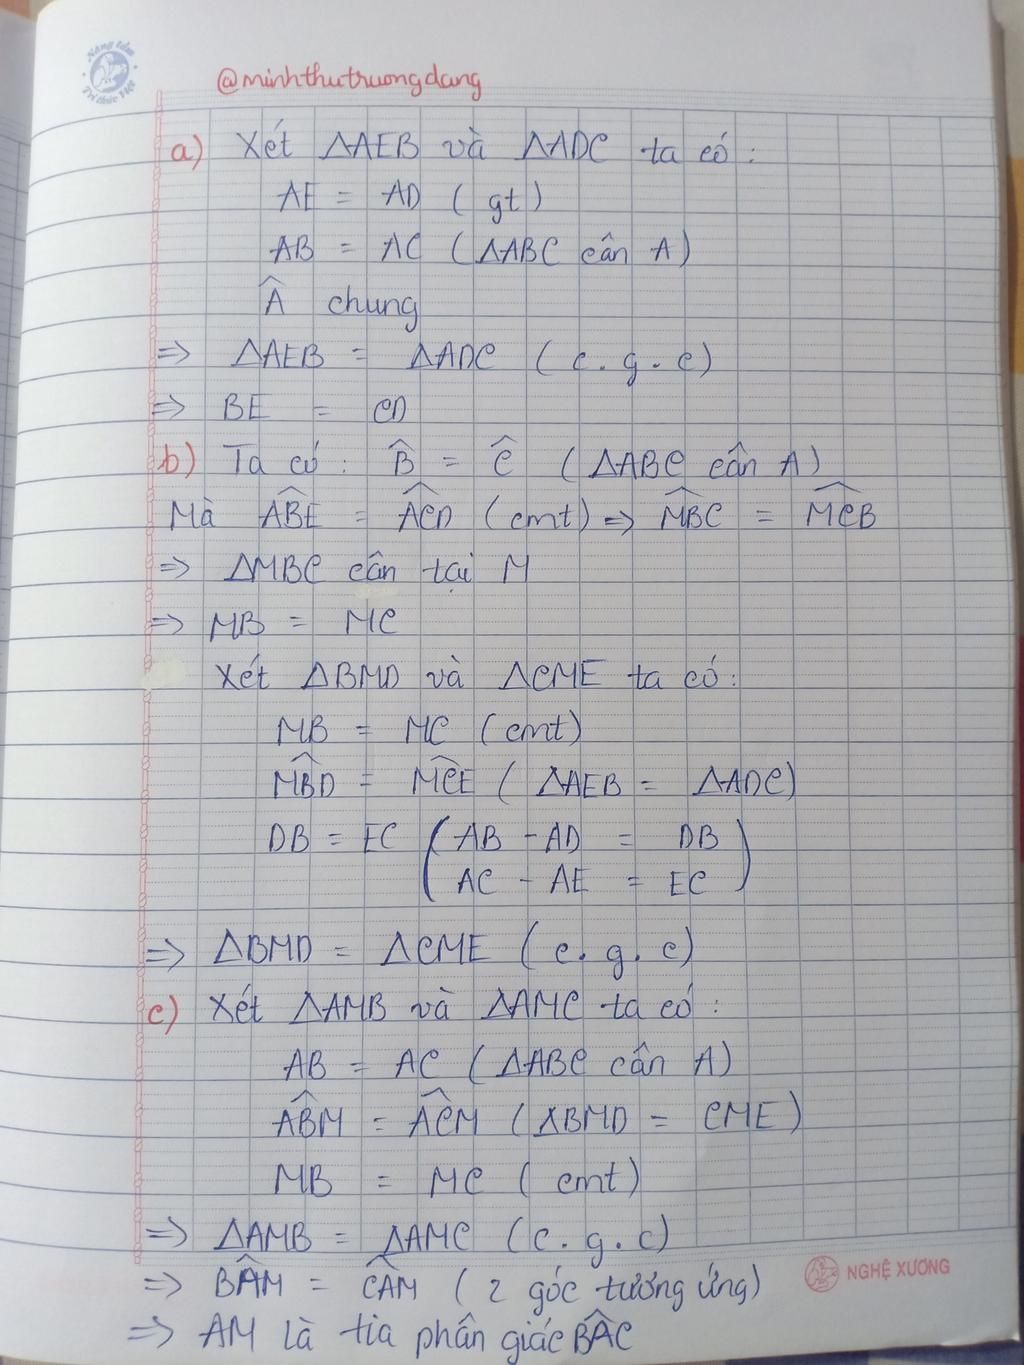 Nâng tầm
Tri thức Việt
@minhthutruongdang
a) Xét ΔAEB và ΔADC ta có :
AE = AD ( gt )
AB = AC ( ΔABC cân A )
Â chung
=> ΔAEB = ΔADC ( c . g . c )
=> BE = CD
b) Ta có : B̂ = Ĉ ( ΔABC cân A )
Mà ABE^ = ACD^ ( cmt ) => MBC^ = MCB^
=> ΔMBC cân tại M
=> MB = MC
Xét ΔBMD và ΔCME ta có :
MB = MC ( cmt )
MBD^ = MCE^ ( ΔAEB = ΔADC )
DB = EC ( AB - AD = DB
AC - AE = EC )
=> ΔBMD = ΔCME ( c . g . c )
c) Xét ΔAMB và ΔAMC ta có :
AB = AC ( ΔABC cân A )
ABM^ = ACM^ ( ΔBMD = CME )
MB = MC ( cmt )
=> ΔAMB = ΔAMC ( c . g . c )
=> BAM^ = CAM^ ( 2 góc tương ứng )
NGHỆ XƯƠNG
=> AM là tia phân giác BAC^